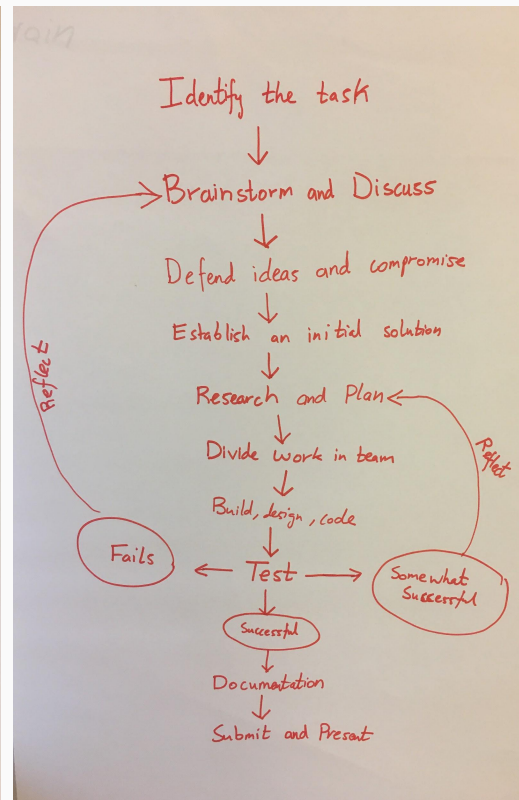 Identify the task
Brainstorm and Discuss
Defend ideas and compromise
Establish an initial solution
Reflect
Research and Plan
Reflect
Divide work in team
Build, design, code
Fails
Test
Somewhat
Successful
Successful
Documentation
Submit and Present